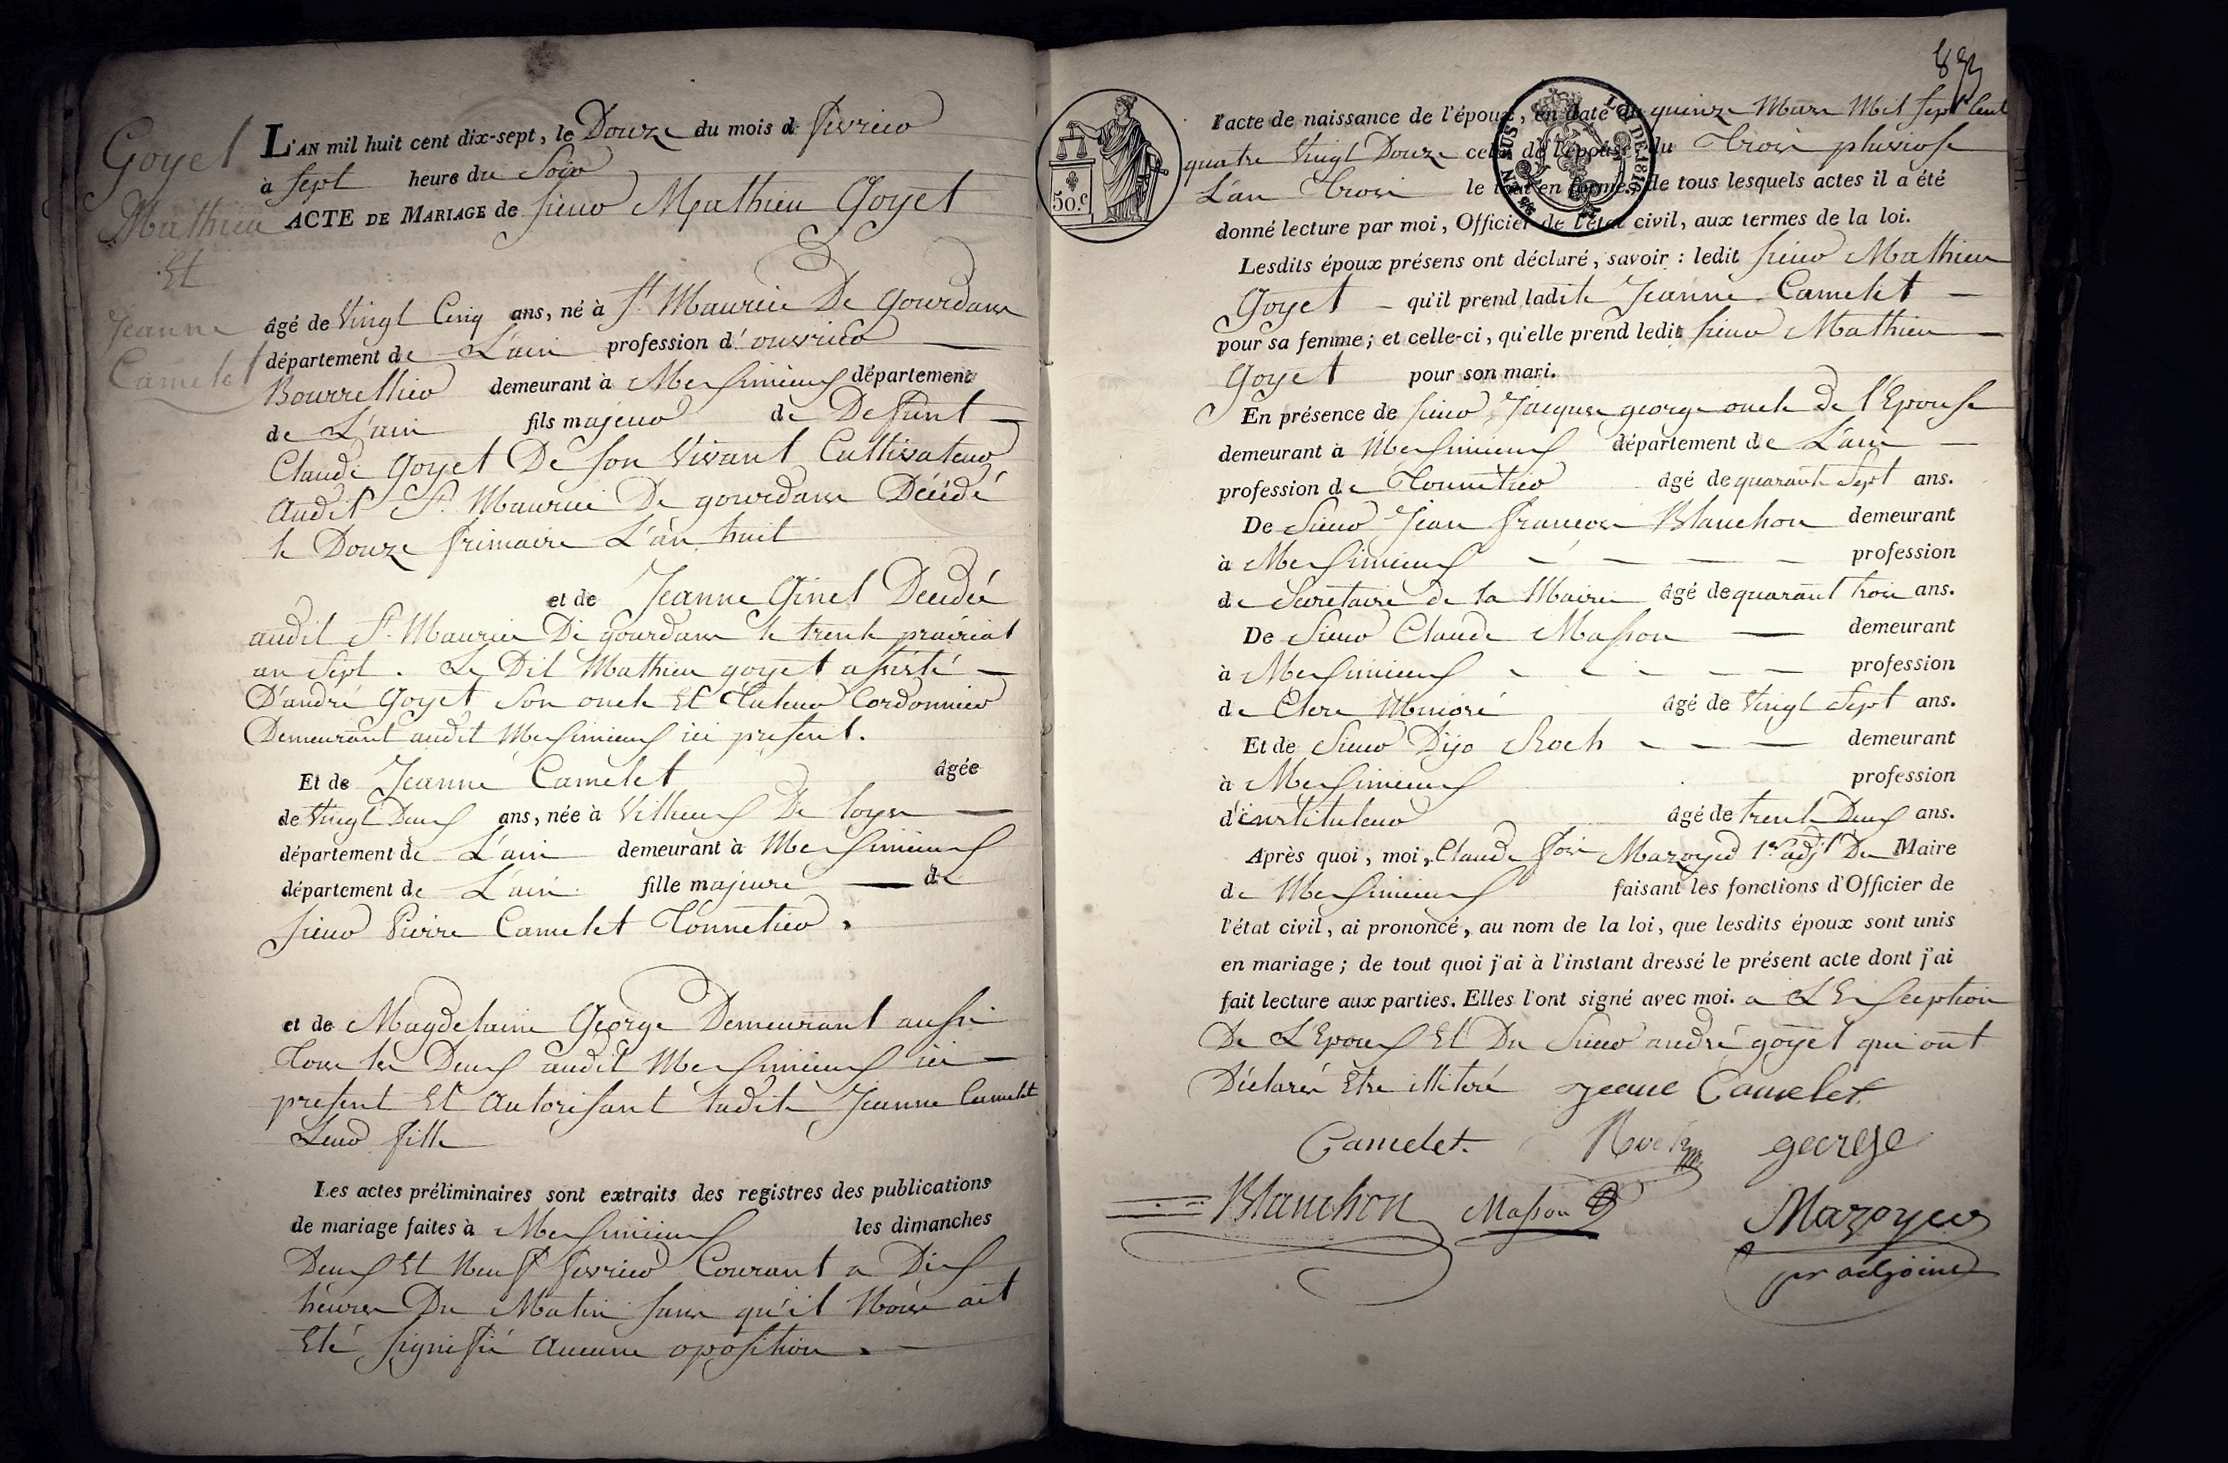 Goyet
Mathieu
Et
Jeanne
Camelet
L'AN mil huit cent dix-sept, le Douze du mois de fevrier
à sept heure du Soir
ACTE DE MARIAGE de sieur Mathieu Goyet
âgé de Vingt Cinq ans, né à St. Maurice De Gourdans
département de L'ain profession d'ouvrier
Bourrellier demeurant à Meximieux département
de L'ain fils majeur de Defunt
Claude Goyet De son Vivant Cultivateur
audit St. Maurice De gourdans Décédé
le Douze frimaire L'an huit
et de Jeanne Ginet Décédée
audit St. Maurice De gourdans le trente prairial
an Sept. Le Dit Mathieu goyet assisté
D'andré Goyet Son oncle Et Tuteur Cordonnier
Demeurant audit Meximieux ici present.
Et de Jeanne Camelet âgée
de Vingt Deux ans, née à Villieux De loyes
département de L'ain demeurant à Meximieux
département de L'ain fille majeure de
sieur Pierre Camelet Tonnelier.
et de Magdelaine George Demeurant aussi
Tous les Deux audit Meximieux ici
present Et Autorisant ladite Jeanne Camelet
Leur fille
Les actes préliminaires sont extraits des registres des publications
de mariage faites à Meximieux les dimanches
Deux Et Neuf fevrier Courant a Dix
heures Du Matin sans qu'il Nous ait
Eté signifié Aucune oposition.
50.c
LOI DE 1816
l'acte de naissance de l'époux, en date du quinze Mars Mil sept Cent
quatre Vingt Douze celui de l'épouse du Trois pluviose
L'an Trois le tout en forme: de tous lesquels actes il a été
donné lecture par moi, Officier de l'état civil, aux termes de la loi.
Lesdits époux présens ont déclaré, savoir: ledit sieur Mathieu
Goyet qu'il prend ladite Jeanne Camelet
pour sa femme; et celle-ci, qu'elle prend ledit sieur Mathieu
Goyet pour son mari.
En présence de sieur Jacques george oncle de l'Epouse
demeurant à Meximieux département de L'ain
profession de Tonnelier âgé de quarante Sept ans.
De Sieur Jean françois Blanchon demeurant
à Meximieux profession
de Secretaire de la Mairie âgé de quarante trois ans.
De Sieur Claude Masson demeurant
à Meximieux profession
de Clerc Minoré âgé de Vingt Sept ans.
Et de Sieur Dijo Roch demeurant
à Meximieux profession
d'instituteur âgé de trente Deux ans.
Après quoi, moi, Claude Mazoyer 1er adjt De Maire
de Meximieux faisant les fonctions d'Officier de
l'état civil, ai prononcé, au nom de la loi, que lesdits époux sont unis
en mariage; de tout quoi j'ai à l'instant dressé le présent acte dont j'ai
fait lecture aux parties. Elles l'ont signé avec moi. a L'Exception
De L'Epoux Et Du Sieur andré goyet qui ont
Déclarés Etre illiteré Jeane Camelet
Camelet. Roch george
Blanchon Masson Mazoyer
pr adjoint